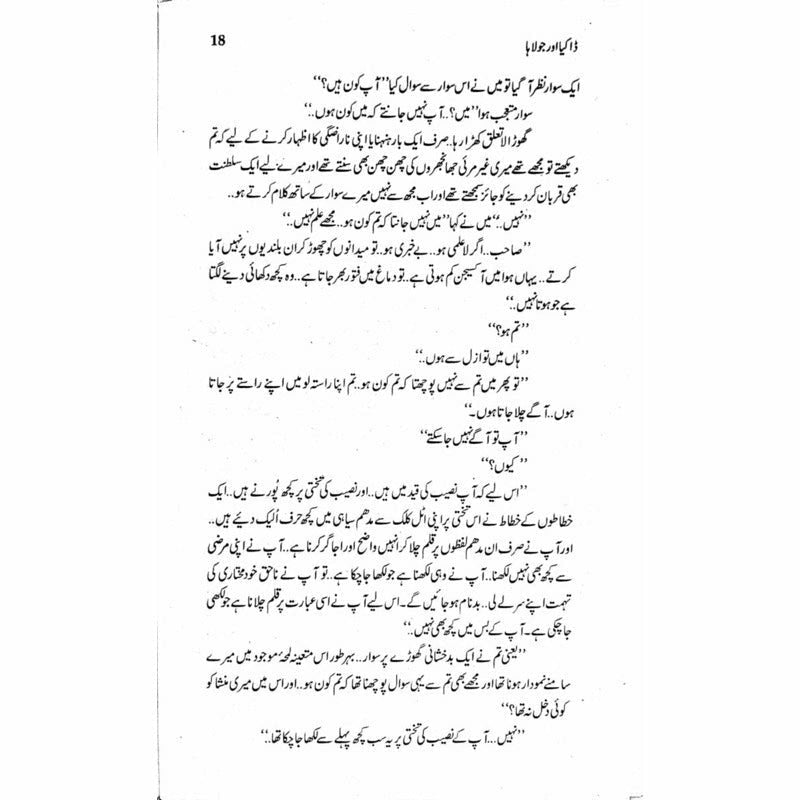 18
ڈاکیا اور جولاہا
ایک سوار نظر آ گیا تو میں نے اس سوار سے سوال کیا ’’آپ کون ہیں؟‘‘
سوار متعجب ہوا ’’میں؟.. آپ نہیں جانتے کہ میں کون ہوں..‘‘
گھوڑا لاتعلق کھڑا رہا.. صرف ایک بار ہنہنایا اپنی ناراضگی کا اظہار کرنے کے لیے کہ تم
دیکھتے تو مجھے تھے میری غیر مرئی جھانجھروں کی چھن چھن بھی سنتے تھے اور میرے لیے ایک سلطنت
بھی قربان کر دینے کو جائز سمجھتے تھے اور اب مجھ سے نہیں میرے سوار کے ساتھ کلام کرتے ہو..
’’نہیں..‘‘ میں نے کہا ’’میں نہیں جانتا کہ تم کون ہو.. مجھے علم نہیں..‘‘
’’صاحب.. اگر لاعلمی ہو.. بے خبری ہو.. تو میدانوں کو چھوڑ کر ان بلندیوں پر نہیں آیا
کرتے.. یہاں ہوا میں آکسیجن کم ہوتی ہے.. تو دماغ میں فتور بھر جاتا ہے.. وہ کچھ دکھائی دینے لگتا
ہے جو ہوتا نہیں..‘‘
’’تم ہو؟‘‘
’’ہاں میں تو ازل سے ہوں..‘‘
’’تو پھر میں تم سے نہیں پوچھتا کہ تم کون ہو.. تم اپنا راستہ لو میں اپنے راستے پر جاتا
ہوں.. آگے چلا جاتا ہوں۔‘‘
’’آپ تو آگے نہیں جا سکتے‘‘
’’کیوں؟‘‘
’’اس لیے کہ آپ نصیب کی قید میں ہیں.. اور نصیب کی تختی پر کچھ پُورنے ہیں.. ایک
خطاطوں کے خطاط نے اس تختی پر اپنی اٹل کلک سے مدھم سیاہی میں کچھ حرف اُلیک دیئے ہیں..
اور آپ نے صرف ان مدھم لفظوں پر قلم چلا کر انہیں واضح اور اجاگر کرنا ہے.. آپ نے اپنی مرضی
سے کچھ بھی نہیں لکھنا.. آپ نے وہی لکھنا ہے جو لکھا جا چکا ہے.. تو آپ نے ناحق خود مختاری کی
تہمت اپنے سر لے لی.. بدنام ہو جائیں گے۔ اس لیے آپ نے اسی عبارت پر قلم چلانا ہے جو لکھی
جا چکی ہے۔ آپ کے بس میں کچھ بھی نہیں..‘‘
’’یعنی تم نے ایک بدخشانی گھوڑے پر سوار.. بہرطور اس متعینہ لمحۂ موجود میں میرے
سامنے نمودار ہونا تھا اور مجھے بھی تم سے یہی سوال پوچھنا تھا کہ تم کون ہو.. اور اس میں میری منشا کو
کوئی دخل نہ تھا؟‘‘
’’نہیں... آپ کے نصیب کی تختی پر یہ سب کچھ پہلے سے لکھا جا چکا تھا..‘‘